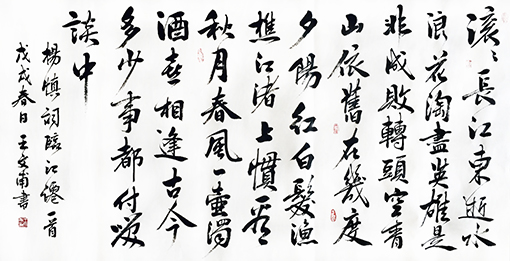 滚〻長江東逝水
浪花淘盡英雄是
非成敗轉頭空青
山依舊在幾度
夕陽紅白髮漁
樵江渚上慣看
秋月春風一壺濁
酒喜相逢古今
多少事都付笑
談中
楊慎詞臨江僊一首
戊戌春日王文甫書